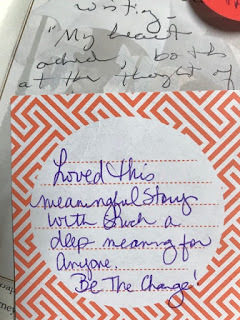 writing -
"My heart
aches, both
at the thought of
Loved this
meaningful story
with such a
deep meaning for
anyone.
Be The Change!